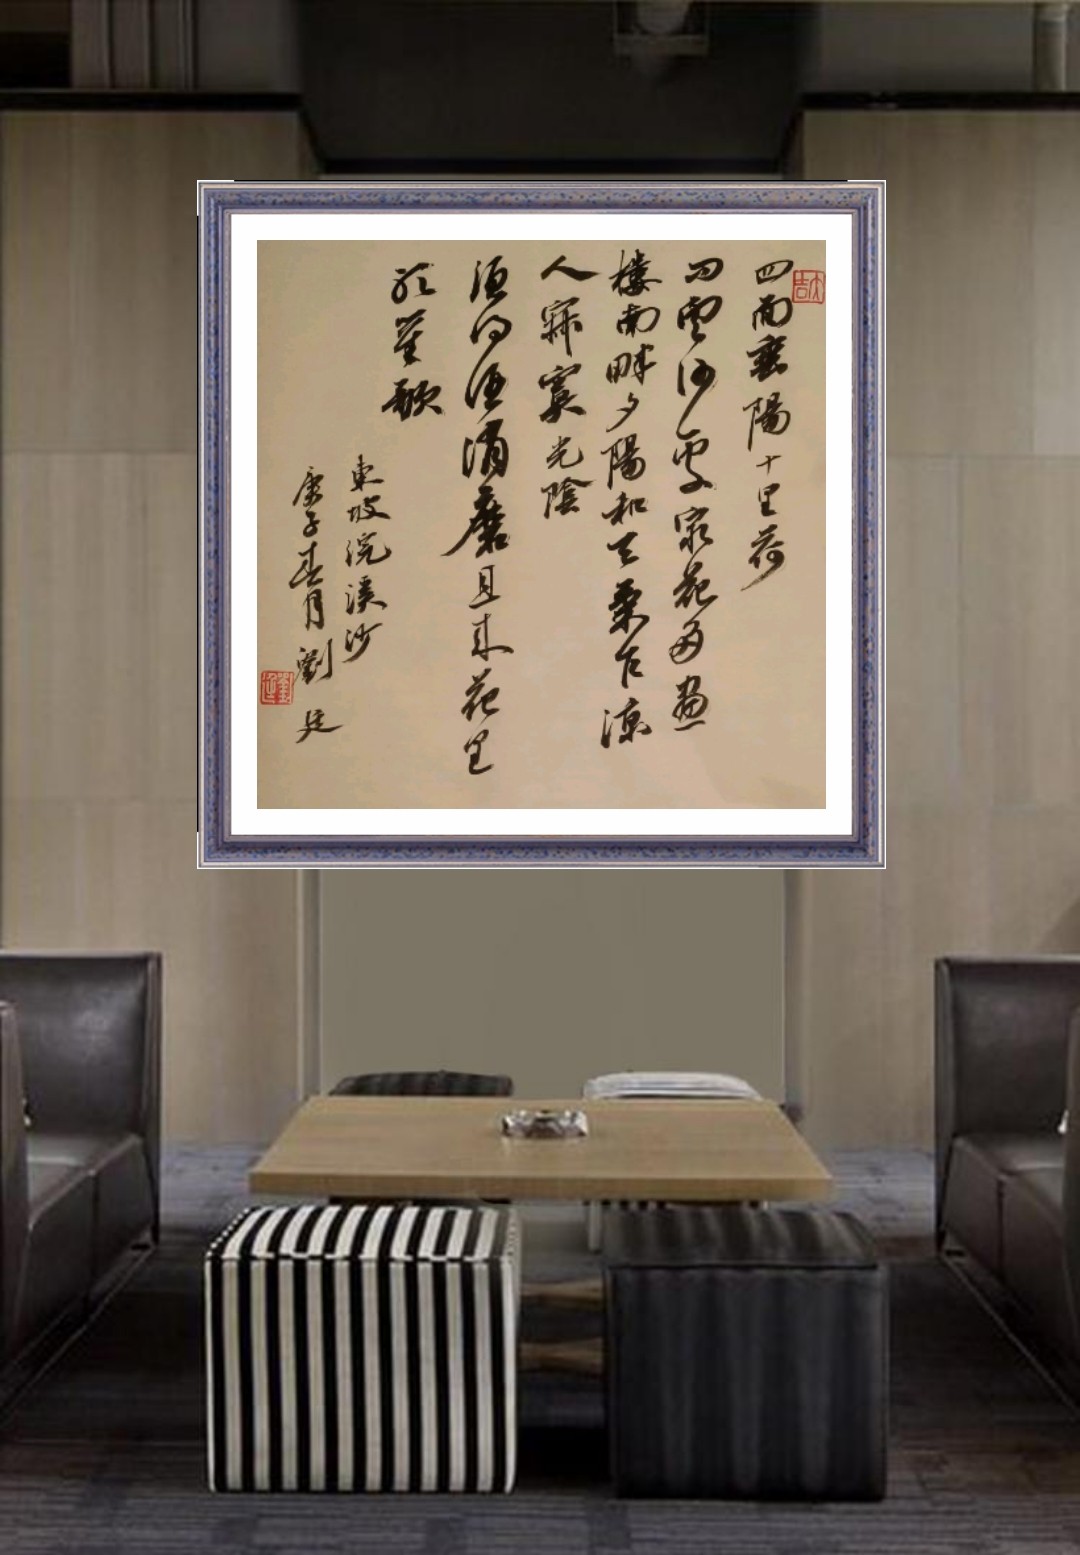 四面襄陽十里荷
问雲何處最花多畫
樓南畔夕陽和天氣乍涼
人寂寞光陰
須得酒消磨且来花里
聽笙歌
東坡浣溪沙
庚子春月劉廷
大吉